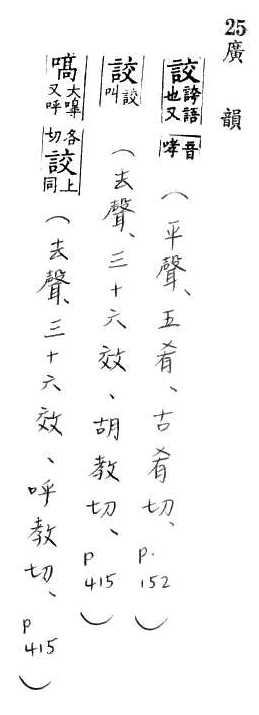 25廣韻
詨誇語也又音哮（平聲、五肴、古肴切、p.152）
詨詨叫（去聲、三十六效、胡教切、p415）
嗃大嘷又呼各切詨上同（去聲、三十六效、呼教切、p415）